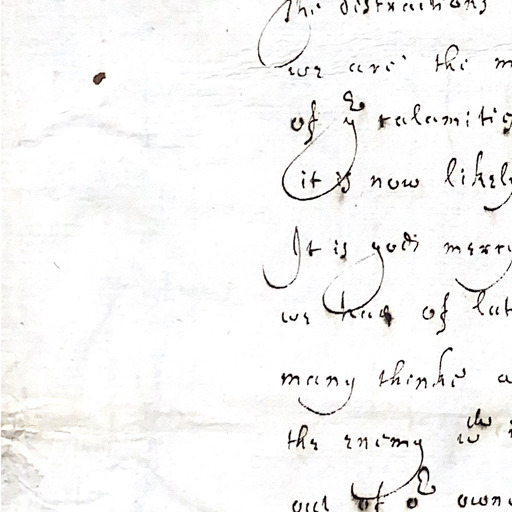 The distractions
we are the m
of yᵉ calamities
it is now likely
It is gods mercy
we had of lat
many thinke a
the enemy wᶜʰ
out of oʳ owne